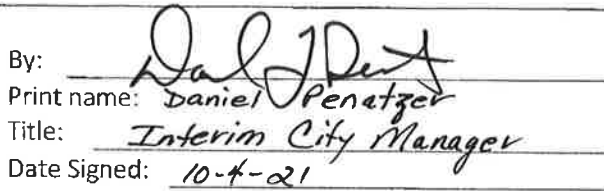 By:
Print name: Daniel Penatzer
Title: Interim City Manager
Date Signed: 10-4-21